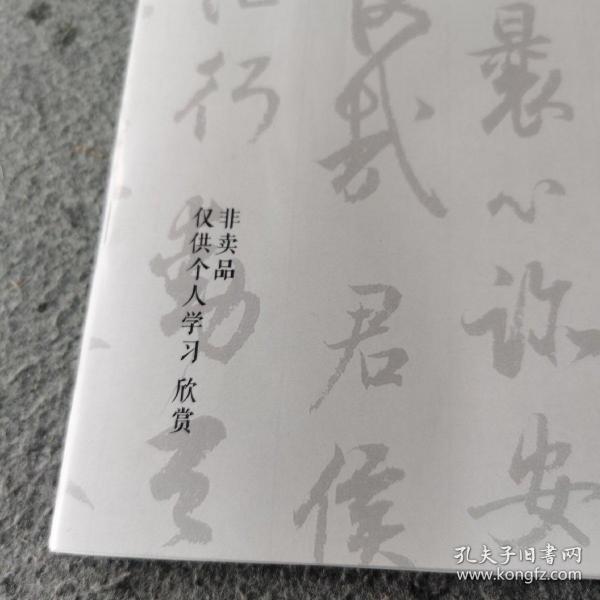 非卖品
仅供个人学习 欣赏
心 弥 安
君 侯
行 勤
孔夫子旧书网
www.kongfz.com